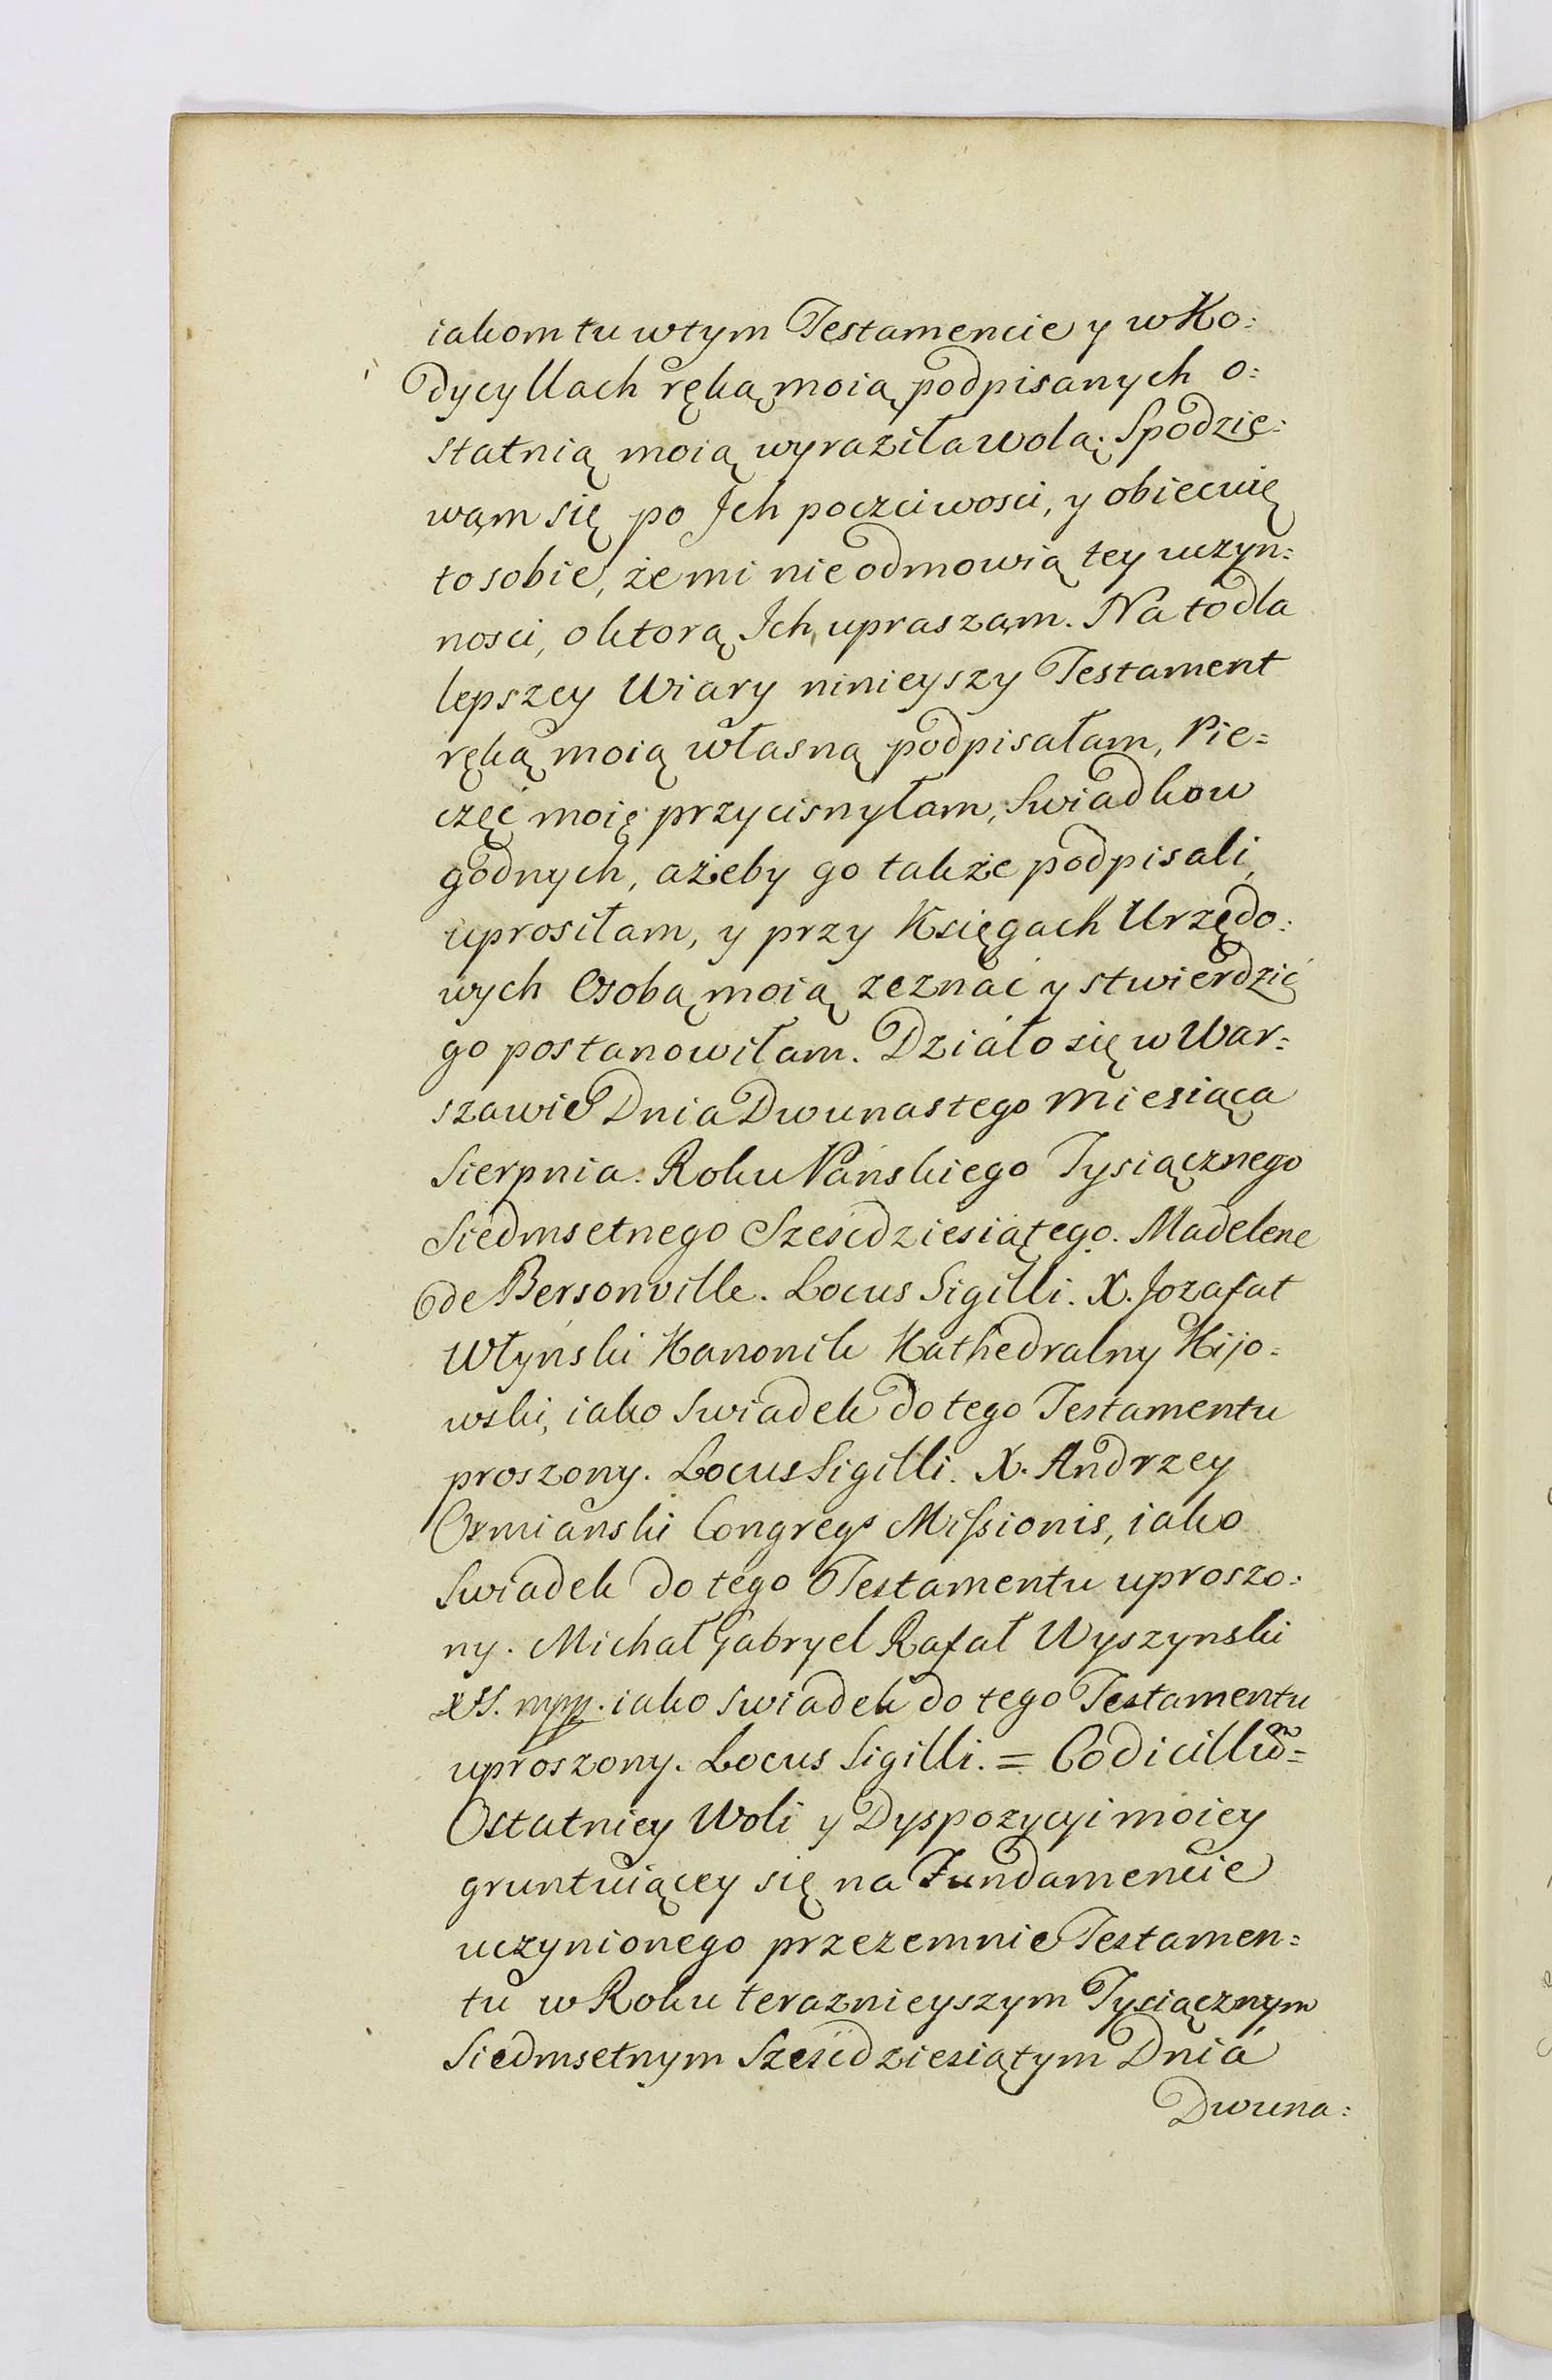 iakom tu w tym Testamencie y w Ko:
dycyllach ręką moią podpisanych o:
statnią moią wyraziła wolą. Spodzię:
wąm się po Ich poczciwosci, y obiecuię
to sobie, że mi nie odmowią tey uczyn:
nosci, o ktorą Ich upraszam. Na to dla
lepszey Wiary ninieyszy Testament
ręką moią własną podpisałam, Pie=
częć moię przycisnyłam, Swiadkow
godnych, ażeby go także podpisali,
uprosiłam, y przy Księgach Urzędo:
wych Osobą moią zeznać y stwierdzić
go postanowiłam. Działo się w War:
szawie Dnia Dwunastego Miesiąca
Sierpnia Roku Pańskiego Tysiącznego
Siedmsetnego Sześćdziesiątego. Madelene
de Bersonville. Locus Sigilli. X. Jozafat
Włyński Kanonik Kathedralny Kijo=
wski, iako Swiadek do tego Testamentu
proszony. Locus Sigilli. X. Andrzey
Ormiański Congregs Missionis, iako
Swiadek do tego Testamentu uproszo:
ny. Michał Gabryel Rafał Wyszynski
mpp. iako Swiadek do tego Testamentu
uproszony. Locus Sigilli. = Codicillũ=
Ostatniey Woli y Dyspozycyi moiey
gruntuiącey się na Fundamencie
uczynionego przezemnie Testamen=
tu w Roku teraznieyszym Tysiącznym
Siedmsetnym Sześćdziesiątym Dnia
Dwuna: